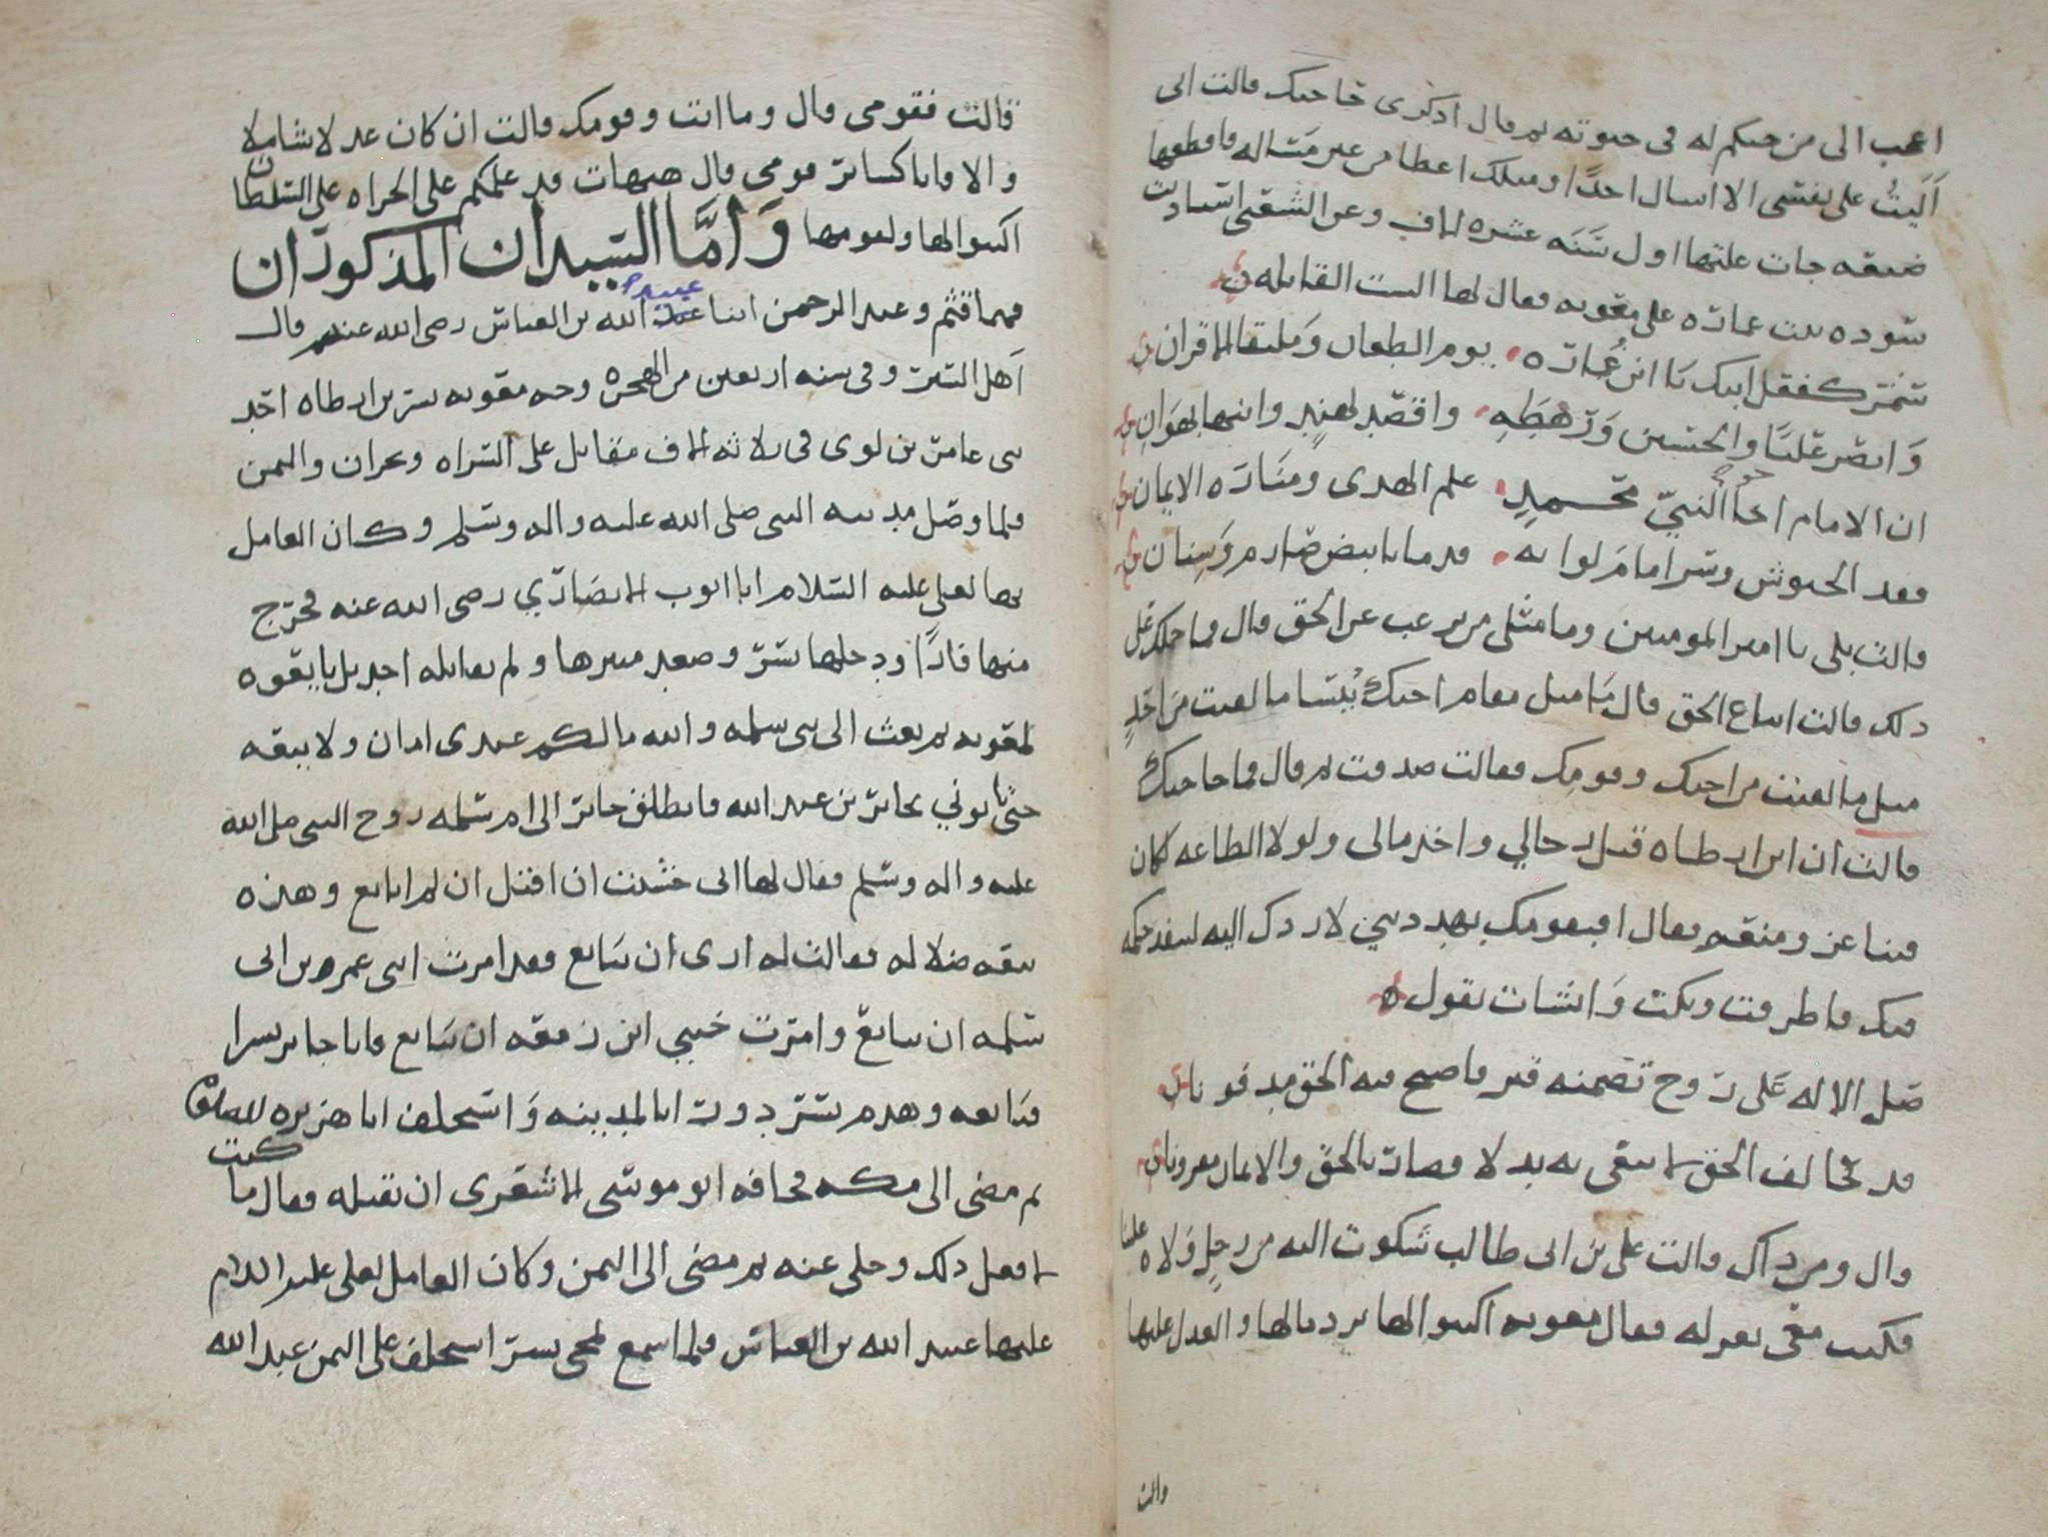 اعجب الى من حبكم له فى حيوته ثم قال اذكرى حاجتك قالت انى
آليتُ على نفسى الا اسال احدًا ومثلك اعطا من غير مساله فاقطعها
ضيعه جات غلتها اول سنه عشره الاف وعن الشعبى استاذنت
سوده بنت عماره على معويه فقال لها الست القايله
شمّر كفعل ابيك يا ابن عُماره يوم الطعان وملتقا الاقران
وانصر عليًا والحسين ورهطه واقصد لهندٍ وابنها بهوان
ان الامام اخا النبيّ محمدٍ علم الهدى ومناره الايمان
فقد الجيوش وسر امام لوائه قدما بابيض صارم وسنان
قالت بلى يا امير المومنين وما مثلى من يرغب عن الحق قال فما حملك على
ذلك قالت اتباع الحق قال يا
مثل ما لقيت من اخيك وقومك فقالت صدقت ثم قال فما حاجتك
قالت ان ابن ارطاه قتل رجالي واخذ مالى ولولا الطاعه لكان
فينا عز ومنعه فقال لاردك اليه لينفذ حكمه
فيك فاطرقت وبكت وانشات تقول
صلى الاله على روح تضمنه قبر فاصبح فيه الحق مدفونا
قد حالف الحق لا يبقى به بدلا فصار بالحق والايمان مقرونا
قال ومن ذاك قالت على بن ابى طالب شكوت اليه من رجلٍ ولاه علينا
فكتب معى بعزله فقال معويه اكتبوا لها برد مالها والعدل عليها
قالت
قالت فقومى قال وما انت وقومك قالت ان كان عدلا شاملا
والا فانا كساير قومى قال هيهات قد علمكم على الجراه على السلطان
اكتبوا لها ولقومها وَأمَّا السيدان المذكوران
فهما قثم وعبد الرحمن ابنا عبيد الله بن العباس رضى الله عنهم قال
اهل السير وفى سنه اربعين من الهجره وجه معويه بسر بن ارطاه احد
بنى عامر بن لوى فى ثلاثه الاف مقاتل على السراه ونجران واليمن
فلما وصل مدينه النبى صلى الله عليه واله وسلم وكان العامل
بها لعلى عليه السلام ابا ايوب الانصاري رضى الله عنه فخرج
منها فارًا ودخلها بسر وصعد منبرها ولم يقاتله احد بل بايعوه
لمعويه ثم بعث الى بنى سلمه والله ما لكم عندى امان ولا بيعه
حتى تاتونى بجابر بن عبد الله فانطلق جابر الى ام سلمه زوج النبى صلى الله
عليه واله وسلم فقال لها انى خشيت ان اقتل ان لم ابايع وهذه
بيعه ضلاله فقالت له ارى ان تبايع فقد امرت ابنى عمر بن ابى
سلمه ان يبايع وامرت ختني ابن زمعه ان يبايع فاتا جابر بسرا
فبايعه وهدم بسر دورًا بالمدينه واستخلف ابا هريره
ثم مضى الى مكه فخافه ابو موسى الاشعرى ان يقتله فقال ما كنت
لافعل ذلك وخلى عنه ثم مضى الى اليمن وكان العامل لعلى عليه السلام
عليها عبيد الله بن العباس فلما سمع بمجى بسر استخلف على اليمن عبد الله